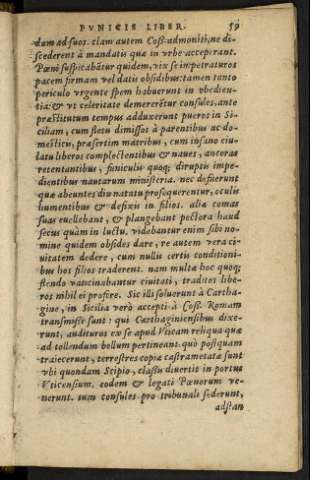 PVNICIS LIBER. 59
dam ad suos. clam autem Coss. admoniti, ne di-
scederent à mandatis quæ in vrbe acceperant.
Pœni suspicabãtur quidem, vix se impetraturos
pacem firmam vel datis obsidibus: tamen tanto
periculo vrgente spem habuerunt in obedien-
tia: & vt celeritate demererẽtur consules, ante
præstitutum tempus adduxerunt pueros in Si-
ciliam, cum fletu dimissos à parentibus ac do-
mesticis, præsertim matribus, cum insano eiu-
latu liberos complectentibus & naues, ancoras
retentantibus, funiculis quoq; diruptis impe-
dientibus nautarum ministeria. nec defuerunt
quæ abeuntes diu natatu prosequerentur, oculis
humentibus & defixis in filios. aliæ comas
suas euellebant, & plangebant pectora haud
secus quàm in luctu. videbantur enim sibi no-
mine quidem obsides dare, re autem vera ci-
uitatem dedere, cum nullis certis conditioni-
bus hos filios traderent. nam multæ hoc quoq;
flendo vaticinabantur ciuitati, traditos libe-
ros nihil ei prosicre. Sic illi soluerunt à Cartha-
gine, in Sicilia verò accepti à Coss. Romam
transmissi sunt: qui Carthaginensibus dixe-
runt, audituros ex se apud Vticam reliqua quæ
ad tollendum bellum pertineant. quò postquam
traiecerunt, terrestres copiæ castrametatæ sunt
vbi quondam Scipio, classis diuertit in portus
Vticensium. eodem & legati Pœnorum ve-
nerunt. tum consules pro tribunali sederunt,
adstan